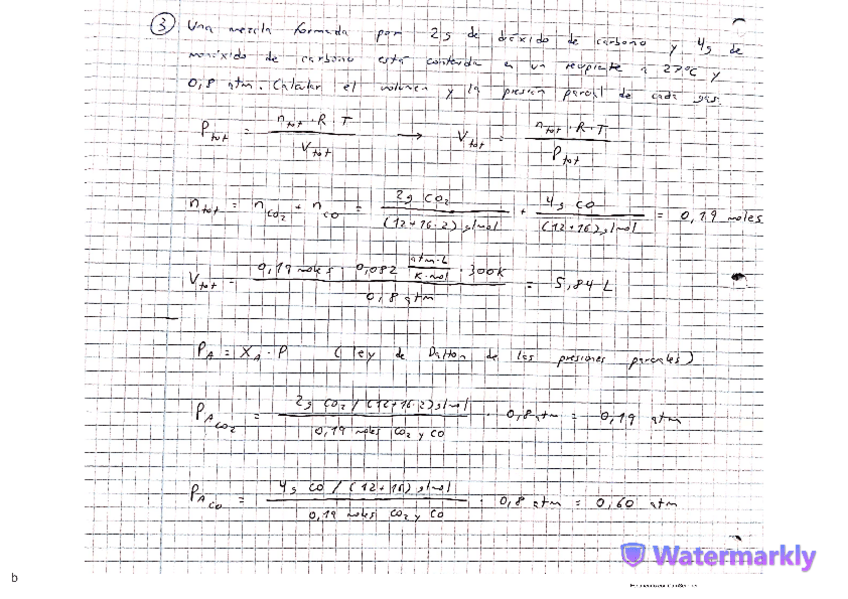 3 Una mezcla formada por 2g de dióxido de carbono y 4g de
monóxido de carbono está contenida en un recipiente a 27ºC y
0,8 atm. Calcular el volumen y la presión parcial de cada gas.
P_tot = n_tot · R · T / V_tot → V_tot = n_tot · R · T / P_tot
n_tot = n_CO2 + n_CO = 2g CO2 / (12+16·2) g/mol + 4g CO / (12+16) g/mol = 0,19 moles
V_tot = 0,19 moles · 0,082 atm·L / K·mol · 300K / 0,8 atm = 5,84 L
P_A = X_A · P (Ley de Dalton de las presiones parciales)
P_A CO2 = 2g CO2 / (12+16·2) g/mol / 0,19 moles CO2 y CO · 0,8 atm = 0,19 atm
P_A CO = 4g CO / (12+16) g/mol / 0,19 moles CO2 y CO · 0,8 atm = 0,60 atm
Watermarkly
b